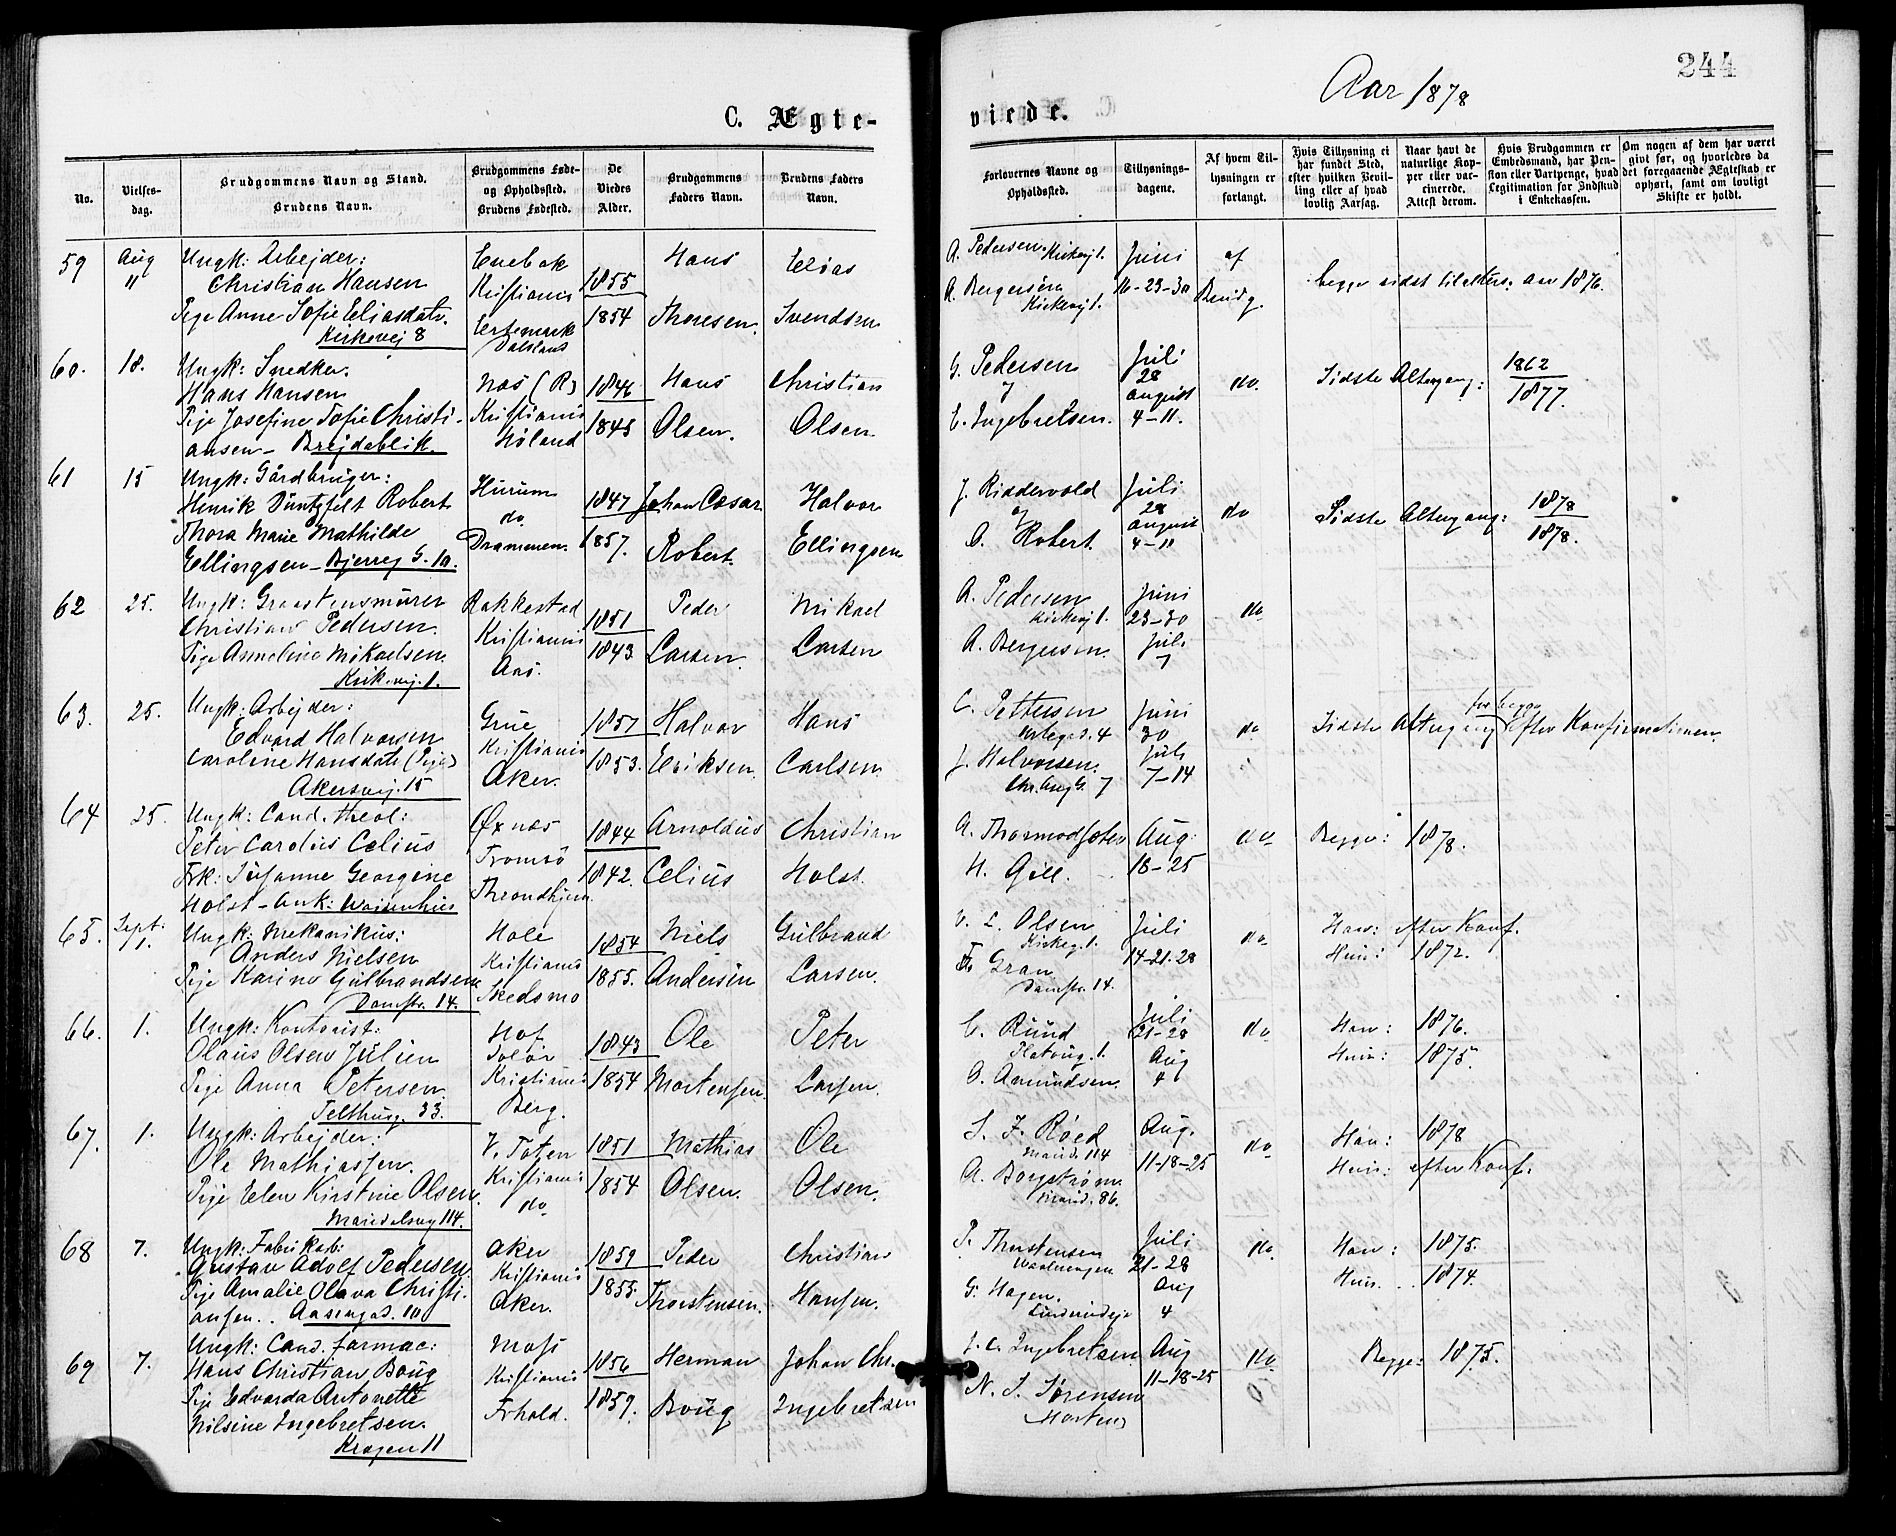 244
Aar 1878
C. Ægte-
viede.
No.
Vielses-
dag.
Brudgommens Navn og Stand.
Brudens Navn.
Brudgommens Føde-
og Opholdssted.
Brudens Fødested.
De
Viedes
Alder.
Brudgommens
Faders Navn.
Brudens Faders
Navn.
Forlovernes Navne og
Opholdssted.
Tillysnings-
dagene.
Af hvem Til-
lysningen er
forlangt.
Hvis Tillysning ei
har fundet Sted,
efter hvilken Bevil-
ling eller af hvad
lovlig Aarsag.
Naar havt de
naturlige Kop-
per eller vac-
cinerede.
Attest derom.
Hvis Brudgommen er
Embedsmand, har Pen-
sion eller Vartpenge, hvad
Legitimation for Indskud
i Enkekassen.
Om nogen af dem har været
givt før, og hvorledes da
det foregaaende Ægteskab er
ophørt, samt om lovligt
Skifte er holdt.
59 Aug 11
Ungk: Arbejder:
Christian Hansen
Pige Anne Sofie Eliasdatr.
Kirkevej 8
Enebak
Kristiania
Dalsland
1855
1854
Hans
Thoresen
Elias
Svendsen
A. Pedersen. Kirkevej 1.
A. Bergersen
Kirkevej 1.
Juni
16-23-30
af
Brudg.
begge sidst til alters: aar 1876.
60. 18.
Ungk: Snedker:
Hans Hansen
Pige Josefine Sofie Christi-
ansen - Brejdablik.
Næs (R)
Kristiania
Høland
1846
1845
Hans
Olsen.
Christian
Olsen
G. Pedersen
E. Ingebretsen.
Juli
28
august
4-11.
do.
Sidste Altergang: 1862
1877.
61 15
Ungk: Gårdbruger:
Henrik Duntzfelt Robert
Thora Marie Mathilde
Ellingsen - Bjerreg G. 10.
Hurum
do.
Drammen.
1847
1857.
Johan Cæsar
Robert.
Halvor
Ellingsen
J. Riddervold
O. Robert.
Juli
28
august
4-11
do
Sidste Altergang: 1878
1878.
62 25.
Ungk: Graastensmurer
Christian Pedersen.
Pige Annelina Mikaelsen.
Kirkevej. 1.
Rakkestad
Kristiania
Aas.
1851
1843
Peder
Larsen.
Mikael
Larsen
A. Pedersen
Kirkevej 1.
A. Bergersen.
Juni
23-30
Juli
7
do
63. 25.
Ungk: Arbejder:
Edvard Halvorsen
Caroline Hansdatr (Pige)
Akersvej. 15
Grue
Kristiania
Aker.
1857
1853.
Halvor
Eriksen.
Hans
Carlsen.
C. Pettersen
J. Halvorsen.
Chr. Aug G. 7
Juni
30
Juli
7-14
do
for begge
Sidste Altergang efter Konfirmationen.
64 25.
Ungk: Cand. theol:
Peter Carolus Celius
Frk: Susanne Georgine
Holst - Ank: Waisenhus
Øxnæs
Tromsø
Throndhjem.
1844
1842.
Arnoldus
Celius
Christian
Holst
A. Thormodsæter
H. Gill.
Aug:
18-25
do
Begge: 1878.
65. Sept: 1.
Ungk: Mekanikus:
Anders Nielsen
Pige Karine Gulbrandsen
Damstr. 14.
Hole
Kristiania
Skedsmo
1854
1855.
Niels
Andersen
Gulbrand
Larsen.
V. L. Olsen
Kirkeg. 1.
Gran
Damstr. 14.
Juli
14-21-28
do
Han: efter Konf.
Hun: 1872.
66. 1.
Ungk: Kontorist:
Olaus Olsen Julien
Pige Anna Petersen.
Telthusg. 33.
Hof
Solør
Kristiania
Berg.
1843
1854
Ole
Mortensen.
Peter
Larsen.
C. Ruud
O. Amundsen.
Juli
21-28
Aug
4
do
Han: 1876.
Hun: 1875.
67. 1.
Ungk: Arbejder:
Ole Mathiassen.
Pige Elen Kirstine Olsen.
Maridalsvej 114.
V. Toten
Kristiania
do
1851
1854
Mathias
Olsen.
Ole
Olsen.
S. J. Røed
Marid. 114
A. Borgstrøm
Marid. 86.
Aug.
11-18-25
do
Han: 1878
Hun: efter Konf:
68 7.
Ungk: Fabrikarb:
Gustav Adolf Pedersen
Pige Amalie Olava Christi-
ansen.. Aasengad. 10
Aker
Kristiania
Aker.
1859
1855.
Peder
Thorstensen.
Christian
Hansen.
P. Thorstensen
G. Hagen.
Juli
21-28
Aug
4
do
Han: 1875.
Hun. .. 1874.
69 7.
Ungk: Cand. farmac:
Hans Christian Boug
Pige Edvarda Antonette
Nilsine Ingebretsen.
Kragen 11
Moss
Kristiania
Frhald.
1856
1859.
Herman
Boug
Johan Chr.
Ingebretsen
J. C. Ingebretsen
N. S. Sørensen
Aug
11-18-25
do
Begge: 1875.